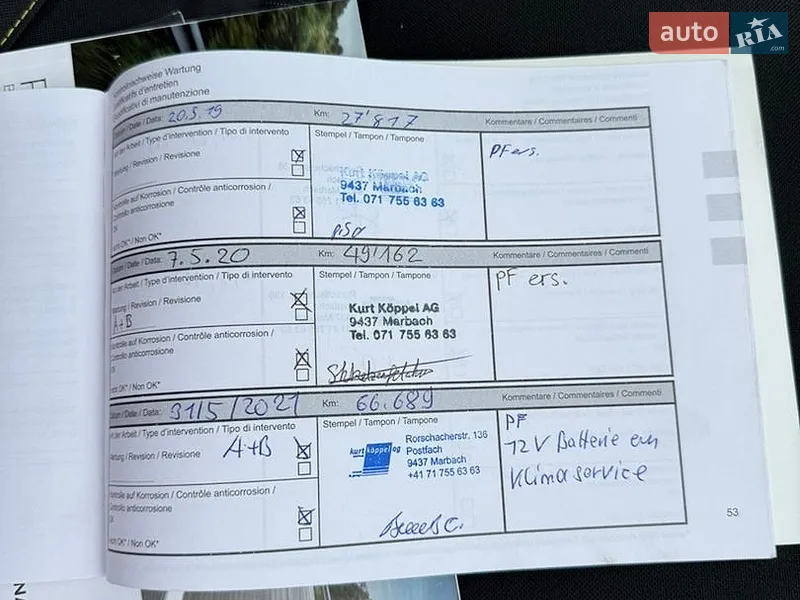 auto RIA.com
Kontrollnachweise Wartung
d'entretien
di manutenzione
/ Date / Data: 20.5.19 Km: 27'817 Kommentare / Commentaires / Commenti
Arbeit / Type d'intervention / Tipo di intervento Stempel / Tampon / Tampone
/ Revision / Revisione PF ers.
Kurt Köppel AG
Kontrolle auf Korrosion / Contrôle anticorrosion / 9437 Marbach
anticorrosione Tel. 071 755 63 63
OK* / Non OK*
/ Date / Data: 7.5.20 Km: 49'162 Kommentare / Commentaires / Commenti
der Arbeit / Type d'intervention / Tipo di intervento Stempel / Tampon / Tampone PF ers.
Wartung / Revision / Revisione
A+B Kurt Köppel AG
9437 Marbach
Kontrolle auf Korrosion / Contrôle anticorrosion / Tel. 071 755 63 63
Controllo anticorrosione
nicht OK* / Non OK*
Datum / Date / Data: 31/5/2021 Km: 66.689 Kommentare / Commentaires / Commenti
Art der Arbeit / Type d'intervention / Tipo di intervento Stempel / Tampon / Tampone PF
Wartung / Revision / Revisione A+B kurt köppel ag Rorschacherstr. 136 12V Batterie
Postfach Klimaservice
9437 Marbach
+41 71 755 63 63
Kontrolle auf Korrosion / Contrôle anticorrosion /
Controllo anticorrosione
nicht OK* / Non OK*
53